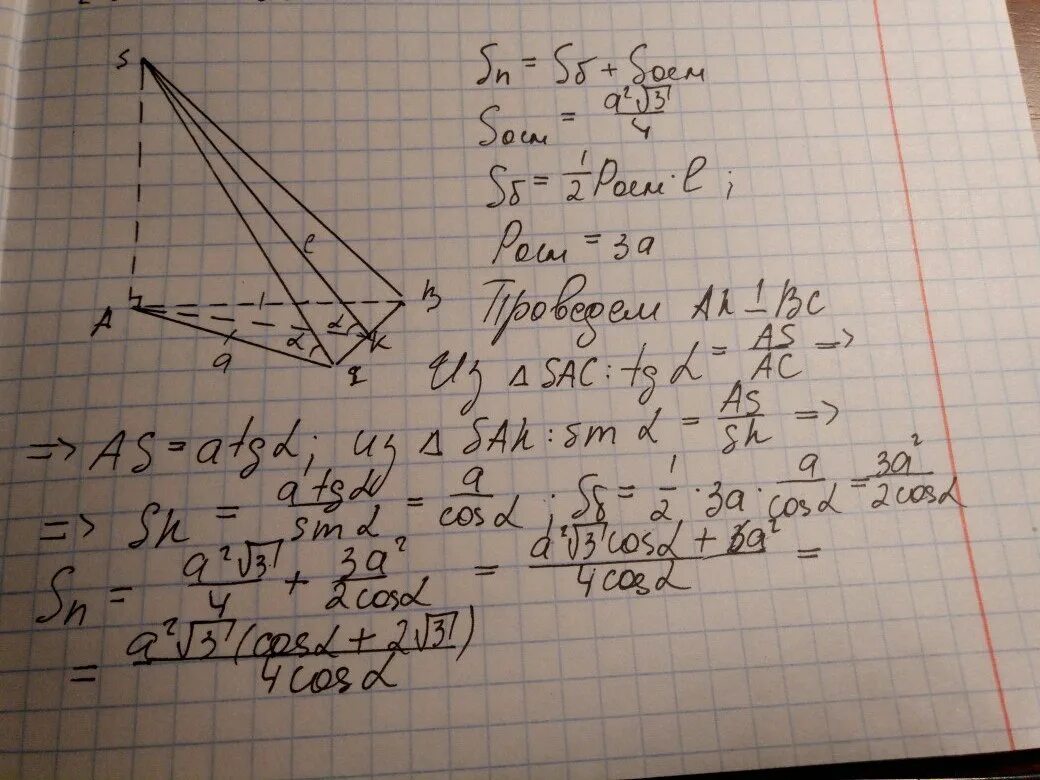 S
A
B
K
a
α
α
l
Sп = Sб + Sосн
Sосн = a²√3/4
Sб = 1/2 Pосн · l ;
Pосн = 3a
Проведем AK ⊥ BC
Из △ SAC : tg α = AS/AC =>
=> AS = a tg α ; из △ SAK : sin α = AS/SK =>
=> SK = a tg α/sin α = a/cos α ; Sб = 1/2 · 3a · a/cos α = 3a²/2cos α
Sп = a²√3/4 + 3a²/2cos α = a²√3 cos α + 6a²/4cos α =
= a²√3 (cos α + 2√3)/4cos α